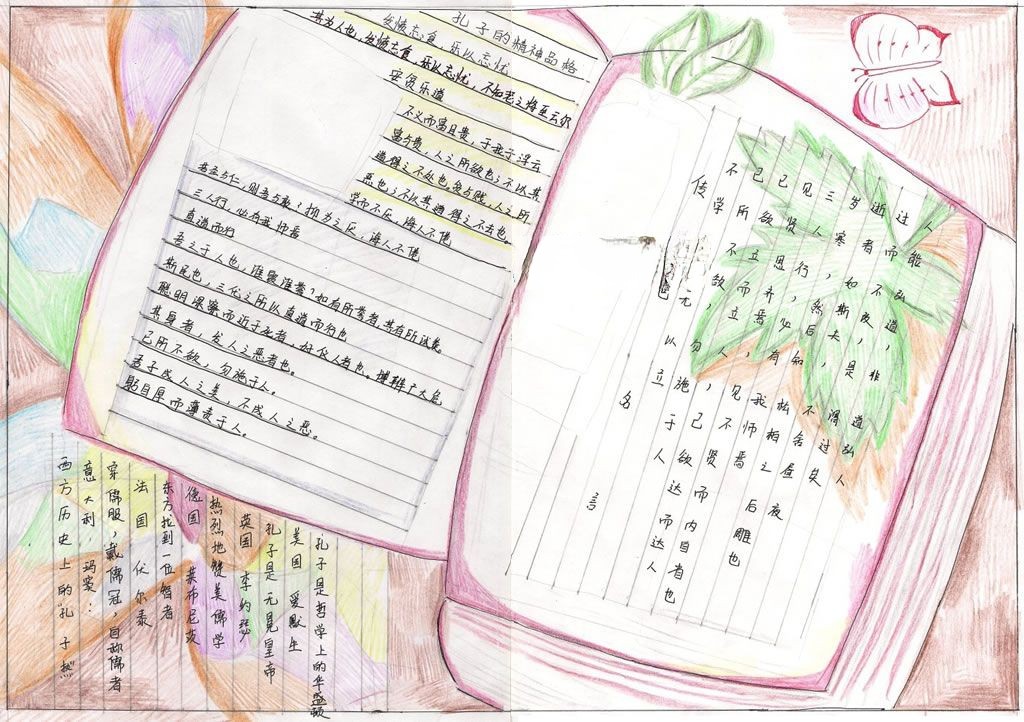 孔子的精神品格
发愤忘食，乐以忘忧
其为人也，发愤忘食，乐以忘忧，不知老之将至云尔
安贫乐道
不义而富且贵，于我于浮云
富与贵，人之所欲也；不以其
道得之不处也，贫与贱，人之所
恶也；不以其道得之不去也。
学而不厌，诲人不倦
若圣与仁，则吾岂敢？抑为之不厌，诲人不倦
三人行，必有我师焉
直道而行
吾之于人也，谁毁谁誉？如有所誉者，其有所试矣。
斯民也，三代之所以直道而行也
聪明深察而近于死者，好议人者也。博辩广大危
其身者，发人之恶者也。
己所不欲，勿施于人。
君子成人之美，不成人之恶。
躬自厚而薄责于人。
传名言
人能弘道，非道弘人
过而不，是过矣
逝者如斯夫，不舍昼夜
岁寒，然后知松柏之后雕也
三人行，必有我师焉
见贤思齐焉，见不贤而内自省也
己欲立而立人，己欲达而达人
己所不欲，勿施于人
不学无以立
西方历史上的“孔子热”
意大利，玛窦：
穿儒服，戴儒冠，自称儒者
法国 伏尔泰
东方找到一位智者
德国 莱布尼茨
热烈地赞美儒学
英国 李约瑟
孔子是无冕皇帝
美国 爱默生
孔子是哲学上的华盛顿